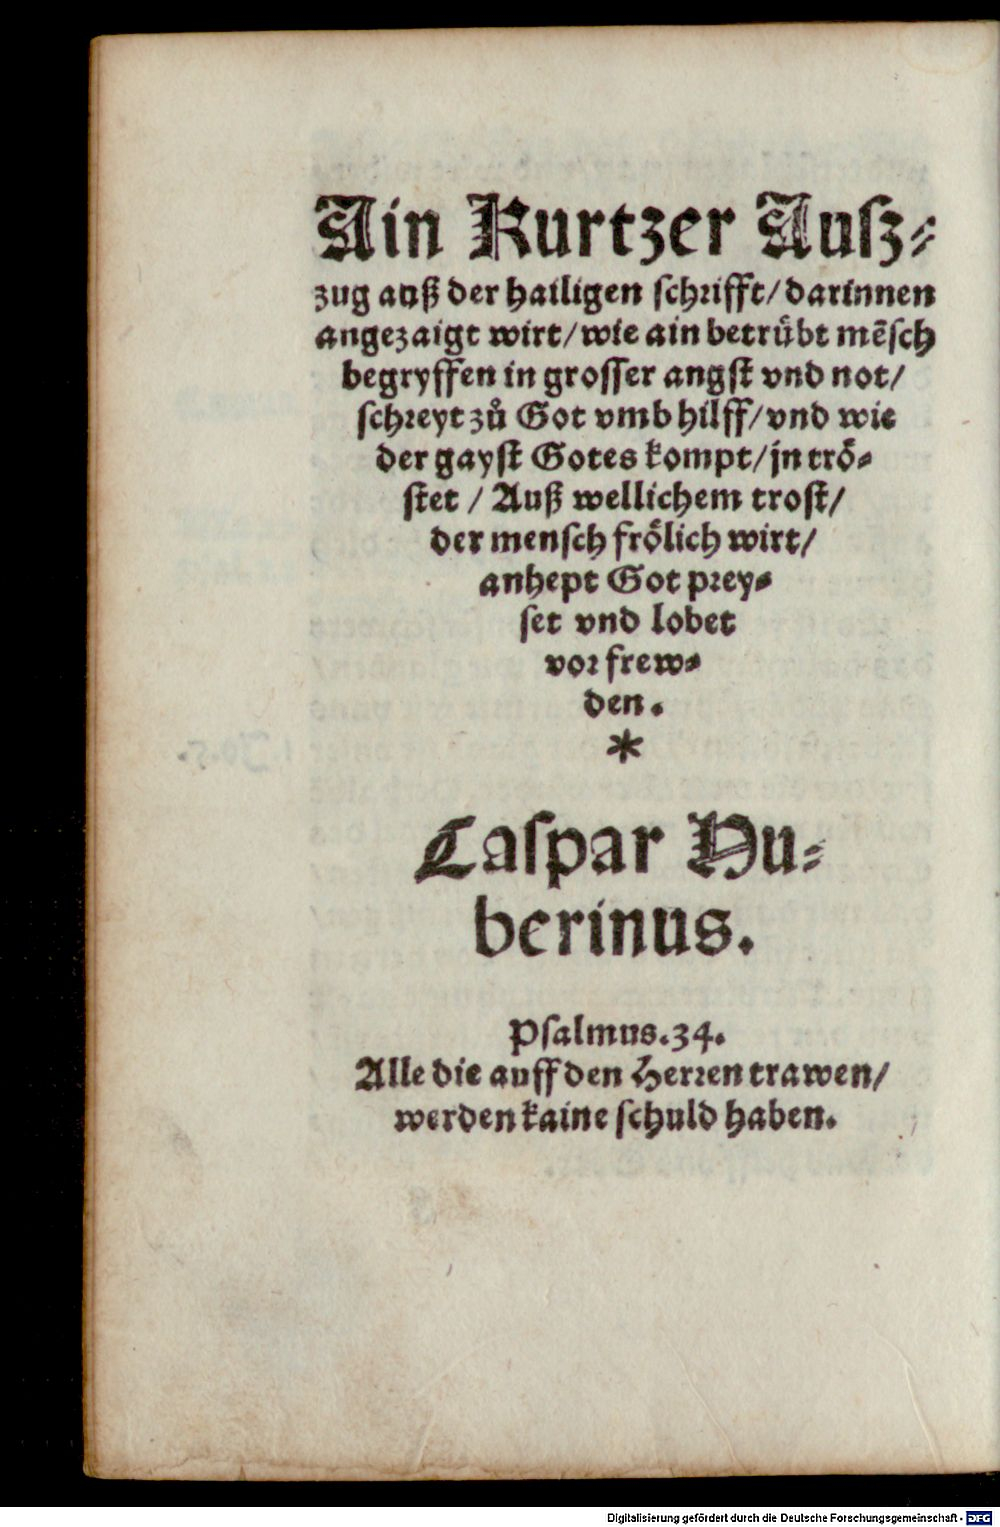 Ain Kurtzer Ausz⸗
zug auß der hailigen schrifft/ darinnen
angezaigt wirt/ wie ain betruͤbt mẽsch
begryffen in grosser angst vnd not/
schreyt zů Got vmb hilff/ vnd wie
der gayst Gotes kompt/ jn troͤ⸗
stet / Auß wellichem trost/
der mensch froͤlich wirt/
anhept Got prey⸗
set vnd lobet
vor frew⸗
den.
*
Caspar Hu⸗
berinus.
Psalmus.34.
Alle die auff den Herren trawen/
werden kaine schuld haben.
Digitalisierung gefördert durch die Deutsche Forschungsgemeinschaft - DFG